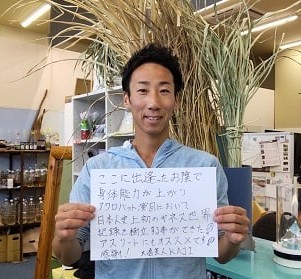 ここに出逢ったお陰で
身体能力が上がり
アクロバット種目において
日本人史上初のギネス世界
記録を樹立る事ができた
アスリートにもオススメです
感謝!